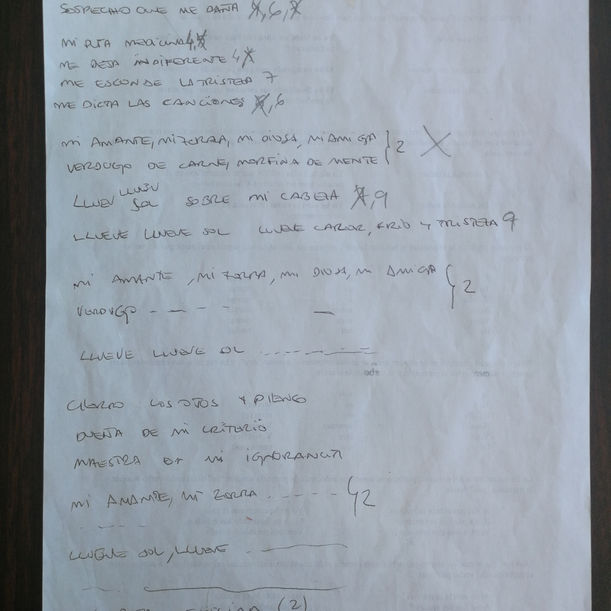 SOSPECHO QUE ME DAÑA X, 6, X
MI PUTA MEDICINA 4, X
ME DEJA INDIFERENTE 4 X
ME ESCONDE LA TRISTEZA 7
ME DICTA LAS CANCIONES X, 6
MI AMANTE, MI ZORRA, MI DIOSA, MI AMIGA
VERDUGO DE CARNE, MORFINA DE MENTE } 2 X
LLUEVE LLUEVE SOL SOBRE MI CABEZA X, 9
LLUEVE LLUEVE SOL LLUEVE CALOR, FRIO Y TRISTEZA 9
MI AMANTE, MI ZORRA, MI DIOSA, MI AMIGA
VERDUGO - - - - - } 2
LLUEVE LLUEVE SOL - - - - - -
CIERRO LOS OJOS Y PIENSO
DUEÑA DE MI CRITERIO
MAESTRA DE MI IGNORANCIA
MI AMANTE, MI ZORRA - - - - - } 2
LLUEVE SOL, LLUEVE
(2)